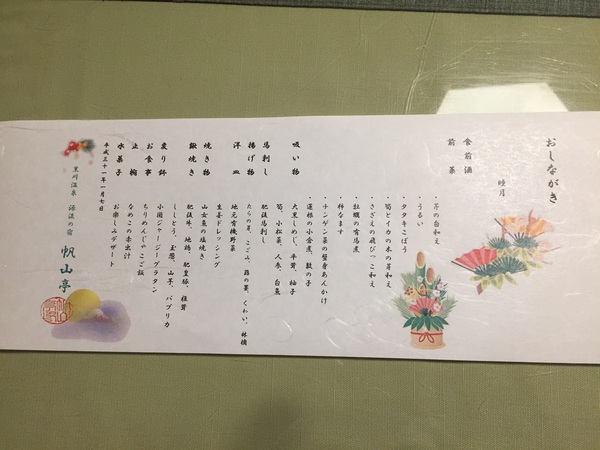 おしながき
睦月
食前酒
前菜
・芹の白和え
・うるい
・タタキごぼう
・筍とイカの木の芽和え
・さざえの飛びっこ和え
・牡蠣の有馬煮
・柿なます
・チンゲン菜の蟹身あんかけ
・蓮根の小倉煮、数の子
吸い物
大黒しめじ、平茸、柚子
筍、小松菜、人参、白魚
馬刺し
肥後馬刺し
揚げ物
たらの芽、こごみ、蕗の薹、くわい、林檎
洋皿
地元有機野菜
生姜ドレッシング
焼き物
山女魚の塩焼き
鍬焼き
肥後牛、地鶏、肥皇豚、椎茸
ししとう、玉葱、山芋、パプリカ
炙り鉢
小国ジャージーグラタン
お食事
ちりめんじゃこご飯
止椀
なめこの赤出汁
水菓子
お楽しみデザート
平成三十一年一月七日
黒川温泉 源流の宿 帆山亭